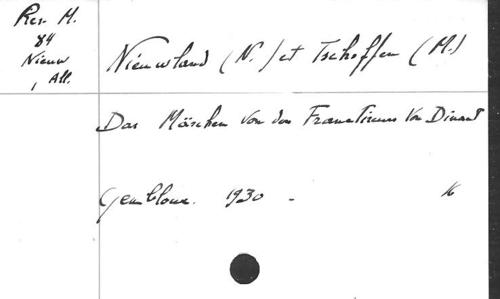 Res. M.
84
Nieuw
, All.
Nieuwland (N.) et Tschoffen (M.)
Das Märchen von den FrancTireurs von Dinant
Gembloux. 1930 -